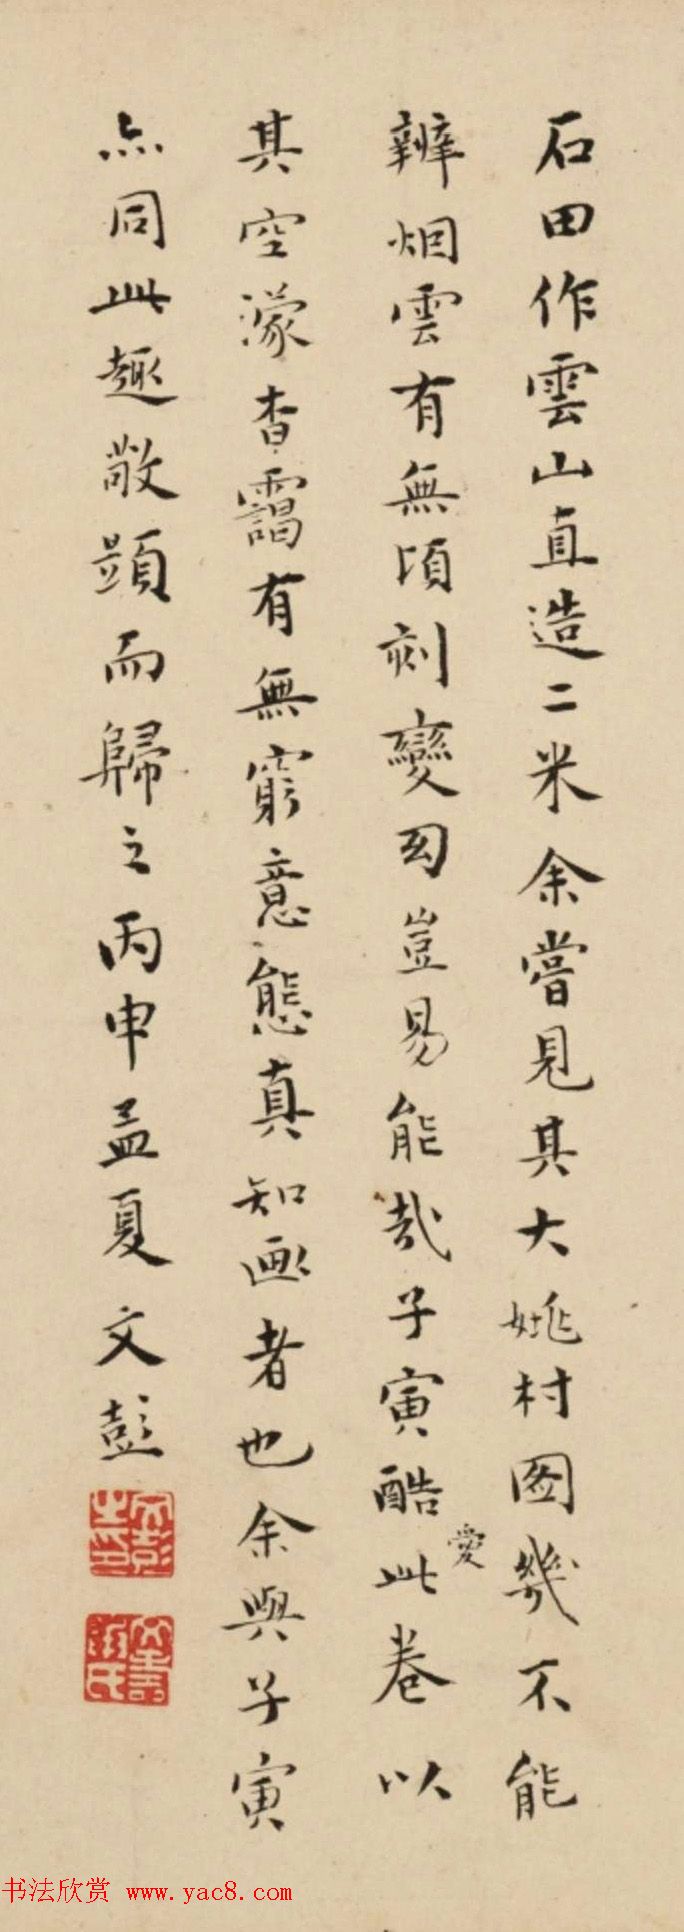 石田作雲山直造二米余嘗見其大姚村图幾不能
辨烟雲有無頃刻變幻豈易能哉子寅酷愛此卷以
其空濛杳靄有無窮意態真知画者也余與子寅
亦同此趣敬題而歸之丙申孟夏文彭
文彭之印
文壽承氏
书法欣赏 www.yac8.com